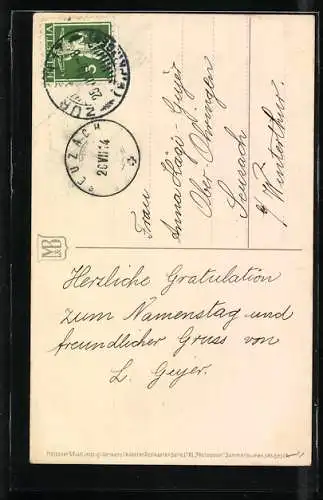 HELVETIA
5
ZÜR
SEUZACH
26 VII 14
Frau
Anna Hägi-Geijer
Ober-Ohringen
Seuzach
b/ Winterthur.
MB
Herzliche Gratulation
zum Namenstag und
freundlicher Gruss von
L. Geijer.